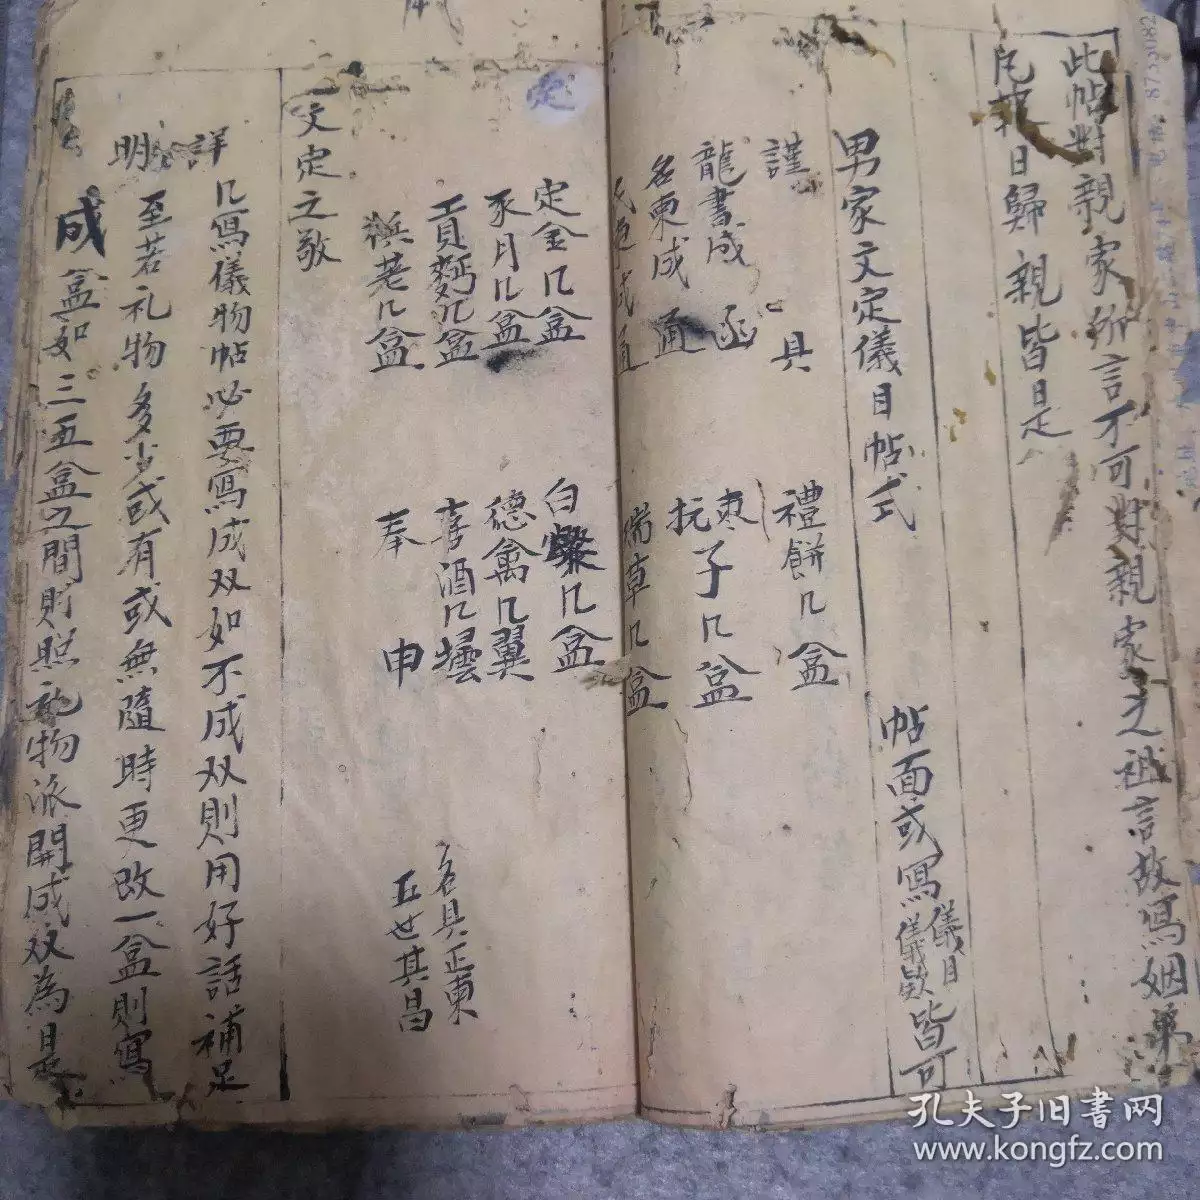 此帖對親家所言不可對親家之祖言故寫姻弟
日歸親皆是
男家文定儀目帖式
帖面或寫儀目儀欵皆可
謹具
禮餅几盒
龍書成函
棗子几盆
名柬成通
瑞草几盒
定金几盒
白燦几盒
豕月几盆
德禽几翼
貢麪几盒
喜酒几壜
奉申
名具正柬
五世其昌
文定之敬
詳明
几寫儀物帖必要寫成双如不成双則用好話補足
至若礼物多少或有或無隨時更改一盒則寫
成盒如三五盒之間則照礼物派開成双為是
孔夫子旧書网
www.kongfz.com